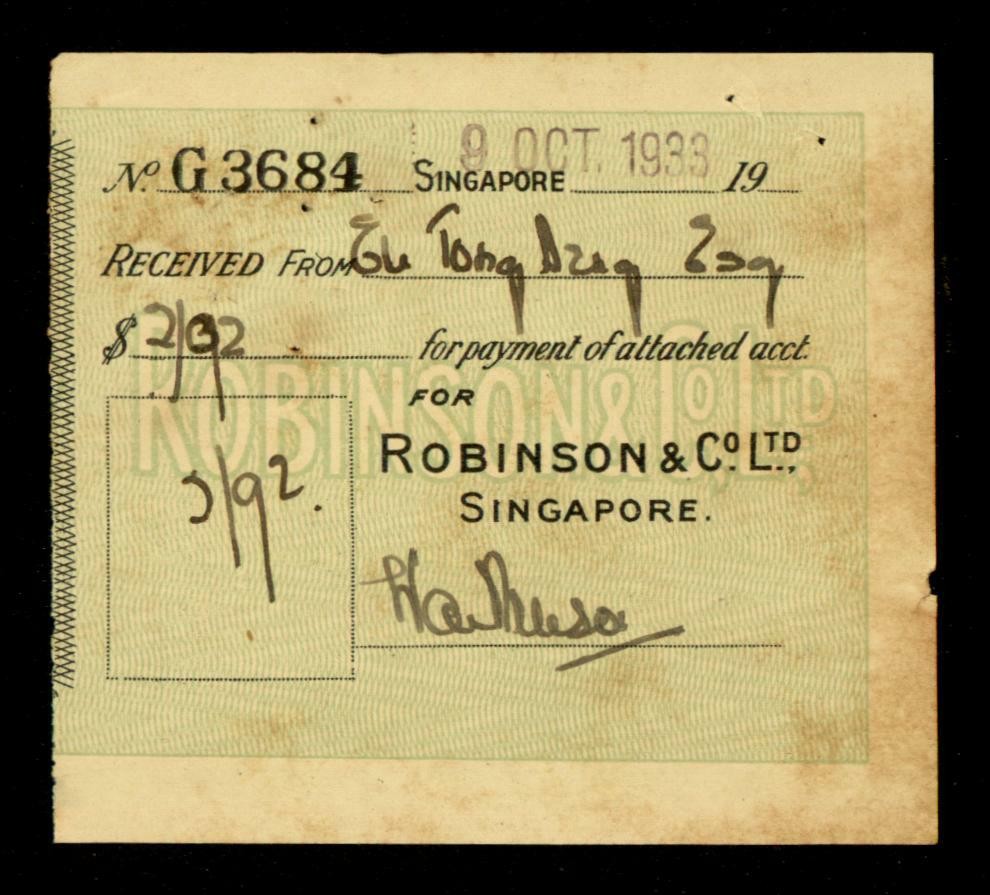 No. G 3684 SINGAPORE 9 OCT. 1933 19
RECEIVED FROM Eu Tong Sen Esq
$ for payment of attached acct.
ROBINSON & Co. LTD
FOR
ROBINSON & Co. LTD.,
SINGAPORE.